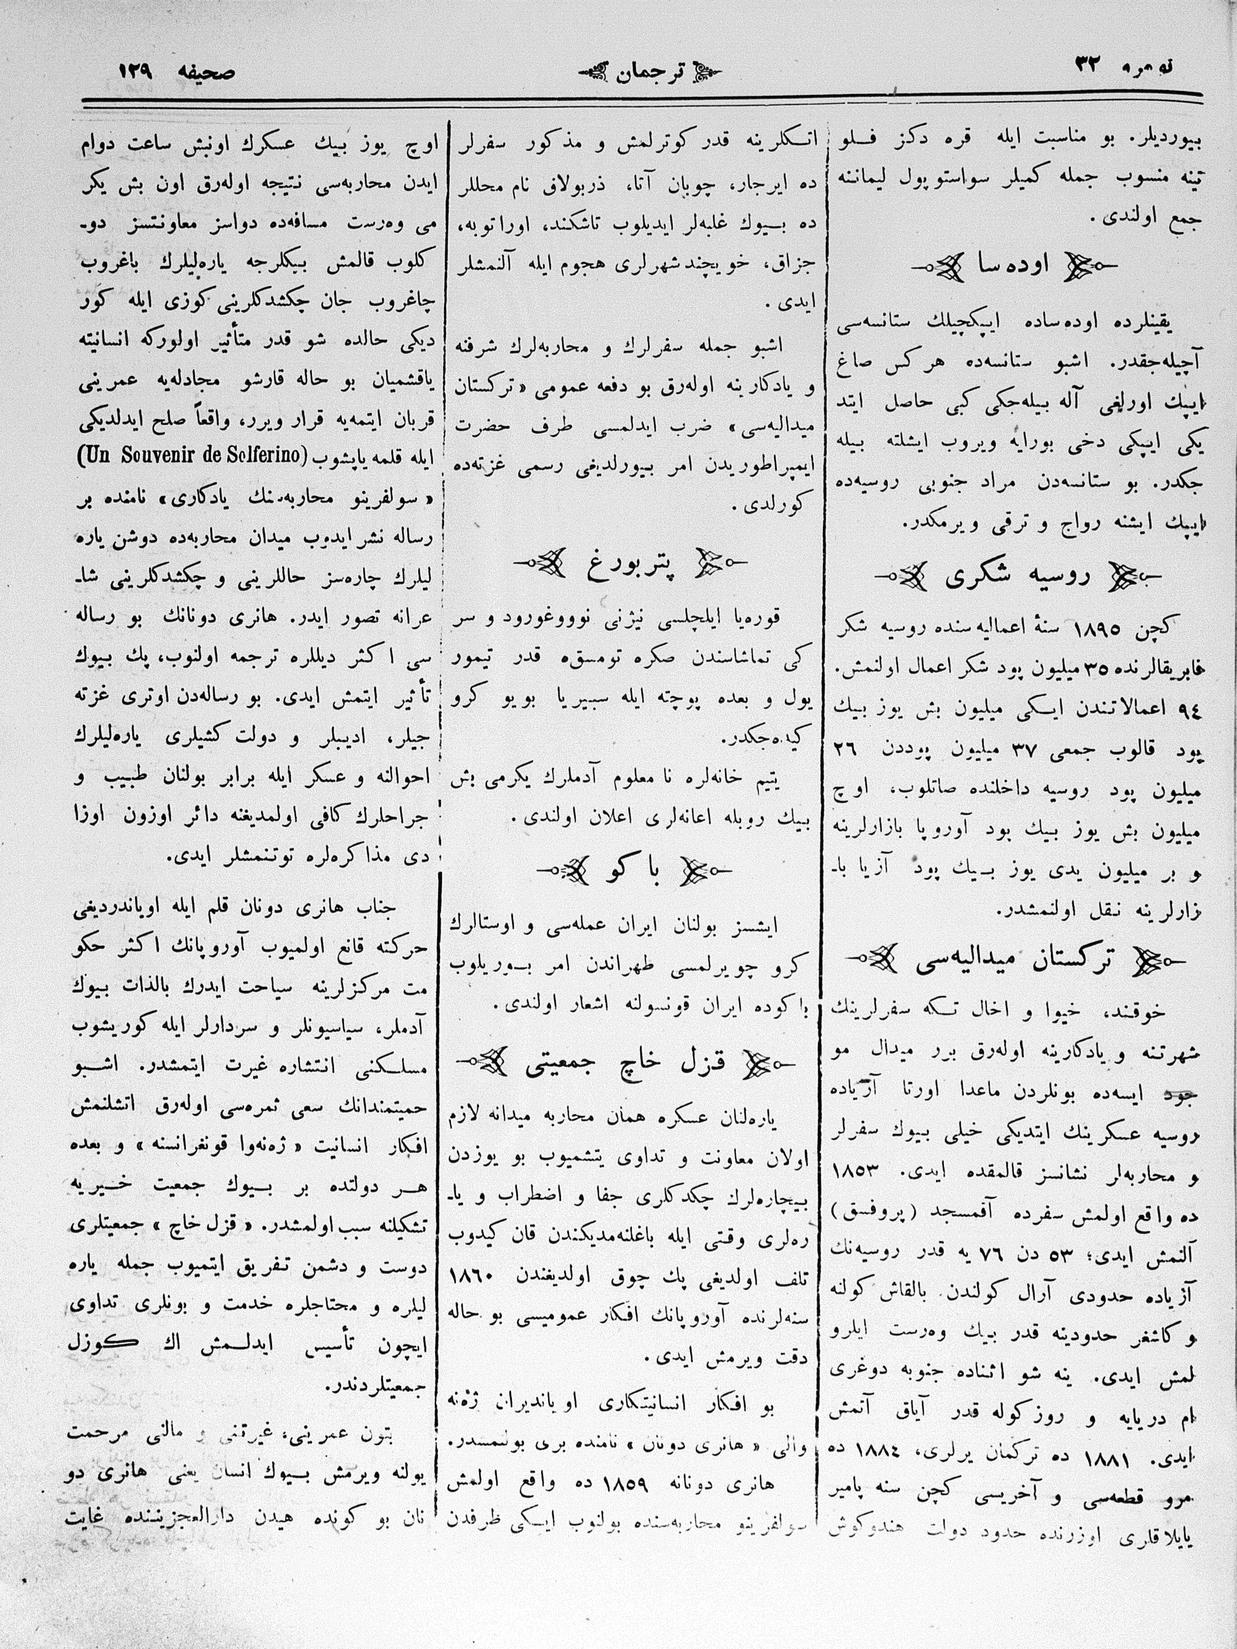 نومرو ٣٢
ترجمان
صحيفه ١٢٩
بيورديلر. بو مناسبت ايله قره دكز فلو
تينه منسوب جمله كميلر سواستوپول ليماننه
جمع اولندى.
اوده‌سا
يقينلرده اوده‌ساده ايپكچيلك ستانسه‌سى
آچيله‌جقدر. اشبو ستانسه‌ده هر كس صاغ
ايپك اورلغى آله بيله‌جكى كبى حاصل ايتد
يكى ايپكى دخى بورايه ويروب ايشلته بيله
جكدر. بو ستانسه‌دن مراد جنوبى روسيه‌ده
ايپك ايشنه رواج و ترقى ويرمكدر.
روسيه شكرى
كچن ١٨٩٥ سنۀ اعماليه سنده روسيه شكر
فابريقالرنده ٣٥ ميليون پود شكر اعمال اولنمش.
٩٤ اعمالاتندن ايكى ميليون بش يوز بيك
پود قالوب جمعى ٣٧ ميليون پوددن ٢٦
ميليون پود روسيه داخلنده صاتلوب، اوچ
ميليون بش يوز بيك پود آوروپا بازارلرينه
و بر ميليون يدى يوز بيك پود آزيا با-
زارلرينه نقل اولنمشدر.
تركستان ميداليه‌سى
خوقند، خيوا و اخال تكه سفرلرينك
شهرتنه و يادكارينه اوله‌رق برر ميدال مو
جود ايسه‌ده بونلردن ماعدا اورتا آزياده
روسيه عسكرينك ايتديكى خيلى بيوك سفرلر
و محاربه‌لر نشانسز قالمقده ايدى. ١٨٥٣
ده واقع اولمش سفرده آقمسجد (پروفسق)
آلنمش ايدى؛ ٥٣ دن ٧٦ يه قدر روسيه‌نك
آزياده حدودى آرال كولندن بالقاش كولنه
و كاشغر حدودينه قدر بيك وه‌رست ايلرو
لمش ايدى. ينه شو اثناده جنوبه دوغرى
ام دريايه و روز كوله قدر آياق آتمش
ايدى. ١٨٨١ ده تركمان يرلرى، ١٨٨٤ ده
مرو قطعه‌سى و آخريسى كچن سنه پامير
يايلاقلرى اوزرنده حدود دولت هندوكوش
اتكلرينه قدر كوترلمش و مذكور سفرلر
ده ايرجار، چوبان آتا، ذربولاق نام محللر
ده بيوك غلبه‌لر ايديلوب تاشكند، اوراتوبه،
جزاق، خويچند شهرلرى هجوم ايله آلنمشلر
ايدى.
اشبو جمله سفرلرك و محاربه‌لرك شرفنه
و يادكارينه اوله‌رق بو دفعه عمومى «تركستان
ميداليه‌سى» ضرب ايدلمسى طرف حضرت
ايمپراطوريدن امر بيورلديغى رسمى غزته‌ده
كورلدى.
پتربورغ
قوره‌يا ايلچلسى نيژنى نوووغورود و سر
كى تماشاسندن صكره تومسقه قدر تيمور
يول و بعده پوچته ايله سبيريا بويو كرو
كيده‌جكدر.
يتيم خانه‌لره نا معلوم آدملرك يكرمى بش
بيك روبله اعانه‌لرى اعلان اولندى.
باكو
ايشسز بولنان ايران عمله‌سى و اوستالرك
كرو چويرلمسى طهراندن امر بوريلوب
باكوده ايران قونسولنه اشعار اولندى.
قزل خاچ جمعيتى
ياره‌لنان عسكره همان محاربه ميدانه لازم
اولان معاونت و تداوى يتشميوب بو يوزدن
بيچاره‌لرك چكدكلرى جفا و اضطراب و يا-
ره‌لرى وقتى ايله باغلنه‌مديكندن قان كيدوب
تلف اولديغى پك چوق اولديغندن ١٨٦٠
سنه‌لرنده آوروپانك افكار عموميسى بو حاله
دقت ويرمش ايدى.
بو افكار انسانيتكارى اوياندیران ژه‌نه
والى «هانرى دونان» نامنده برى بولنمسدر.
هانرى دونانه ١٨٥٩ ده واقع اولمش
سولفرينو محاربه‌سنده بولنوب ايكى طرفدن
اوچ يوز بيك عسكرك اونبش ساعت دوام
ايدن محاربه‌سى نتيجه اوله‌رق اون بش يكر
مى وه‌رست مسافه‌ده دواسز معاونتسز دو-
كلوب قالمش بيكلرجه ياره‌ليلرك باغروب
چاغروب جان چكشدكلرينى كوزى ايله كور
ديكى حالده شو قدر متأثير اولوركه انسانيته
ياقشميان بو حاله قارشو مجادله‌يه عمرينى
قربان ايتمه‌يه قرار ويرر، واقعاً صلح ايدلديكى
ايله قلمه ياپشوب (Un Souvenir de Solferino)
«سولفرينو محاربه‌سنك يادكارى» نامنده بر
رساله نشر ايدوب ميدان محاربه‌ده دوشن ياره
ليلرك چاره‌سز حاللرينى و چكشدكلرينى شا-
عرانه تصور ايدر. هانرى دونانك بو رساله
سى اكثر ديللره ترجمه اولنوب، پك بيوك
تأثير ايتمش ايدى. بو رساله‌دن اوترى غزته
جيلر، اديبلر و دولت كشيلرى ياره‌ليلرك
احوالنه و عسكر ايله برابر بولنان طبيب و
جراحلرك كافى اولمديغنه دائر اوزون اوزا
دى مذاكره‌لره توتنمشلر ايدى.
جناب هانرى دونان قلم ايله اوياندرديغى
حركته قانع اولميوب آوروپانك اكثر حكو
مت مركزلرينه سياحت ايدرك بالذات بيوك
آدملر، سياسيونلر و سردارلر ايله كوريشوب
مسلكنى انتشاره غيرت ايتمشدر. اشبو
حميتمندانك سعى ثمره‌سى اوله‌رق اتشلنمش
افكار انسانيت «ژه‌نه‌وا قونغرانسنه» و بعده
هر دولتده بر بيوك جمعيت خيريه
تشكيلنه سبب اولمشدر. «قزل خاچ» جمعيتلرى
دوست و دشمن تفريق ايتميوب جمله ياره
ليلره و محتاجلره خدمت و بونلرى تداوى
ايچون تأسيس ايدلمش اك كوزل
جمعيتلردندر.
بتون عمرينى، غيرتنى و مالنى مرحمت
يولنه ويرمش بيوك انسان يعنى هانرى دو
نان بو كونده هيدن دارالعجزيننده غايت